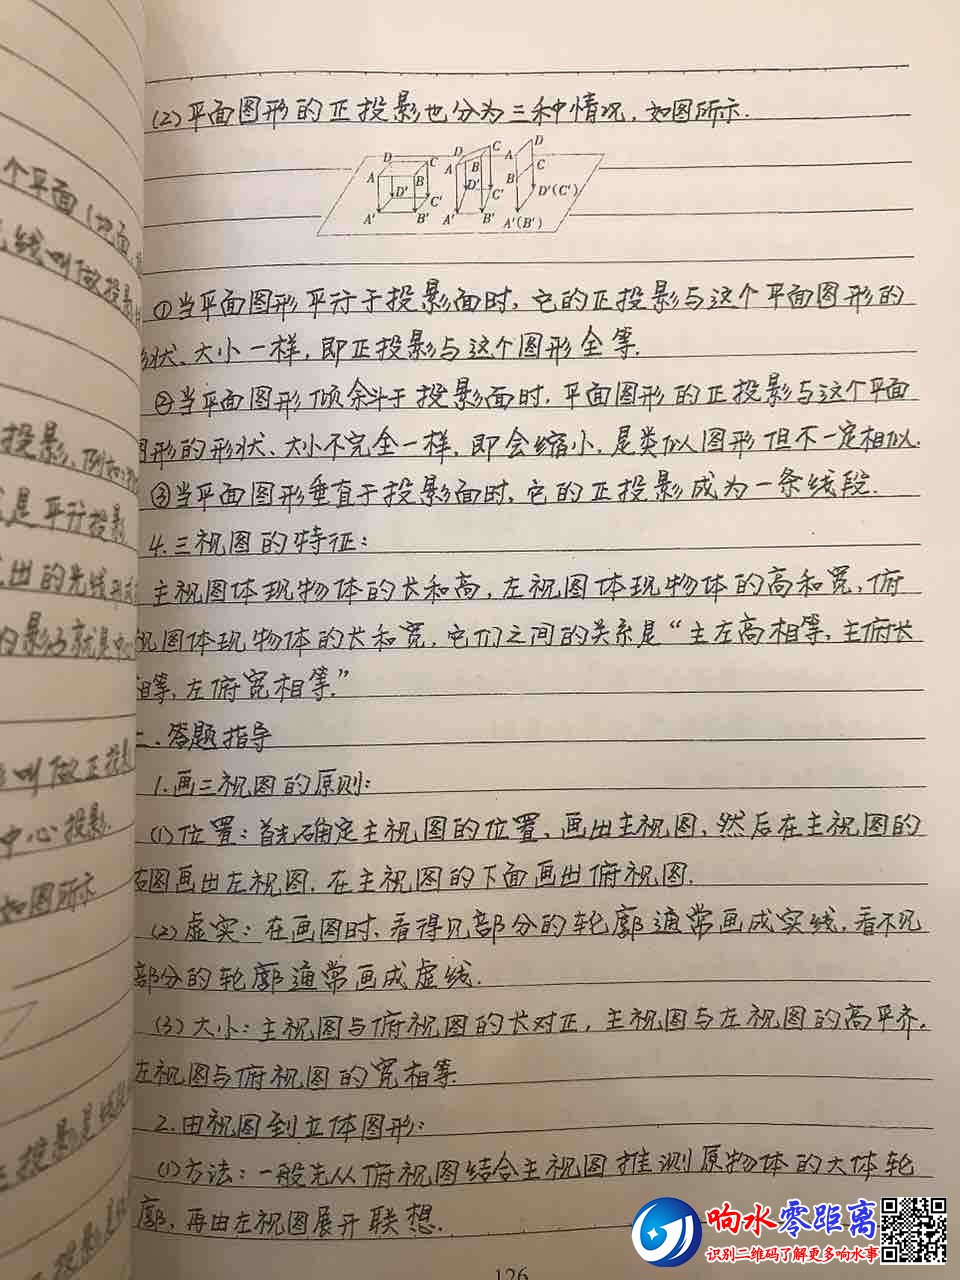 (2)平面图形的正投影也分为三种情况,如图所示.
D C A B D' C' A' B'
D C A B D' C' A' B'
D A C B D'(C') A'(B')
①当平面图形平行于投影面时,它的正投影与这个平面图形的
形状、大小一样,即正投影与这个图形全等.
②当平面图形倾斜于投影面时,平面图形的正投影与这个平面
图形的形状、大小不完全一样,即会缩小,是类似图形但不一定相似.
③当平面图形垂直于投影面时,它的正投影成为一条线段.
4.三视图的特征:
主视图体现物体的长和高,左视图体现物体的高和宽,俯
视图体现物体的长和宽,它们之间的关系是“主左高相等,主俯长
相等,左俯宽相等.”
二.答题指导
1.画三视图的原则:
(1)位置:首先确定主视图的位置、画出主视图,然后在主视图的
右图画出左视图,在主视图的下面画出俯视图.
(2)虚实:在画图时,看得见部分的轮廓通常画成实线,看不见
部分的轮廓通常画成虚线.
(3)大小:主视图与俯视图的长对正,主视图与左视图的高平齐,
左视图与俯视图的宽相等.
2.由视图到立体图形:
(1)方法:一般先从俯视图结合主视图推测原物体的大体轮
廓,再由左视图展开联想.
126
个平面(地面
线叫做投影
投影,例如
是平行投影
出的光线形成
影子就是中心
叫做正投影
中心投影.
如图所示
投影是线段
投影是
响水零距离
识别二维码了解更多响水事